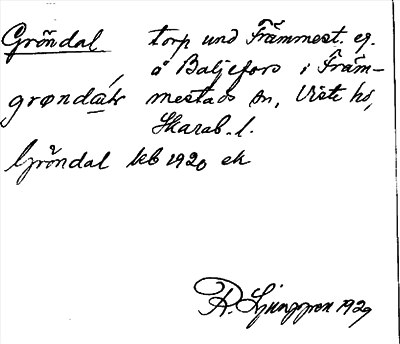 Gröndal torp und Främmest. eg.
å Baljefors i Främ-
grøndá̱ḷ mestads sn, Viste hd,
Skarab. l.
Gröndal kb 1920 ek
R. Ljunggren 1929